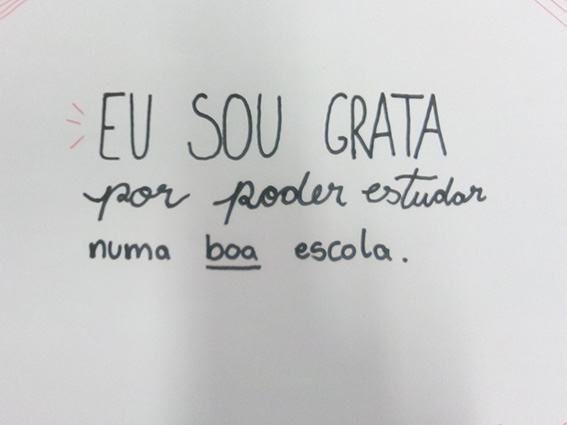 EU SOU GRATA
por poder estudar
numa boa escola.